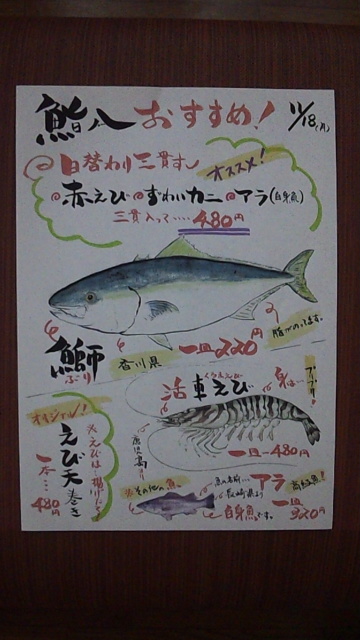 鮨八 おすすめ! 11/18(月)
日替わり三貫すし
オススメ!
赤えび ずわいカニ アラ(白身魚)
三貫入って・・・・480円
脂がのってます。
鰤
ぶり
香川県
一皿 220円
活車えび
くるまえび
身は・・・プリプリ!
一皿-480円
オリジナル!
えび天巻き
一本・・・480円
その他の魚。
魚の名前・・・アラ
長崎県より
白身魚です。
高級魚!
一皿 320円